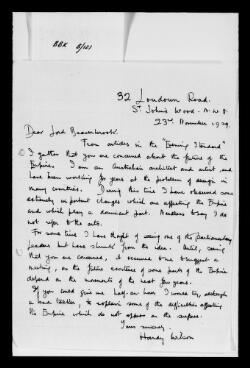 BBK B/101
32 Loudoun Road.
St John's Wood. N.W.8.
23rd November 1929.
Dear Lord Beaverbrook:
From articles in the "Evening Standard"
I gather that you are concerned about the future of the
Empire. I am an Australian architect and artist and
have been working for years at the problem of design in
many countries. During this time I have observed some
extremely important changes which are affecting the Empire
and which play a dominant part. Needless to say I do
not refer to the arts.
For some time I have thought of seeing one of the Parliamentary
Leaders but have shrunk from the idea. Until, seeing
that you are concerned, it occurred to me to suggest a
meeting, as the future condition of some parts of the Empire
depend on the moments of the next few years.
If you could give me half-an-hour I would try, although
a bad talker, to explain some of the difficulties affecting
the Empire which do not appear on the surface.
Yours sincerely.
Hardy Wilson